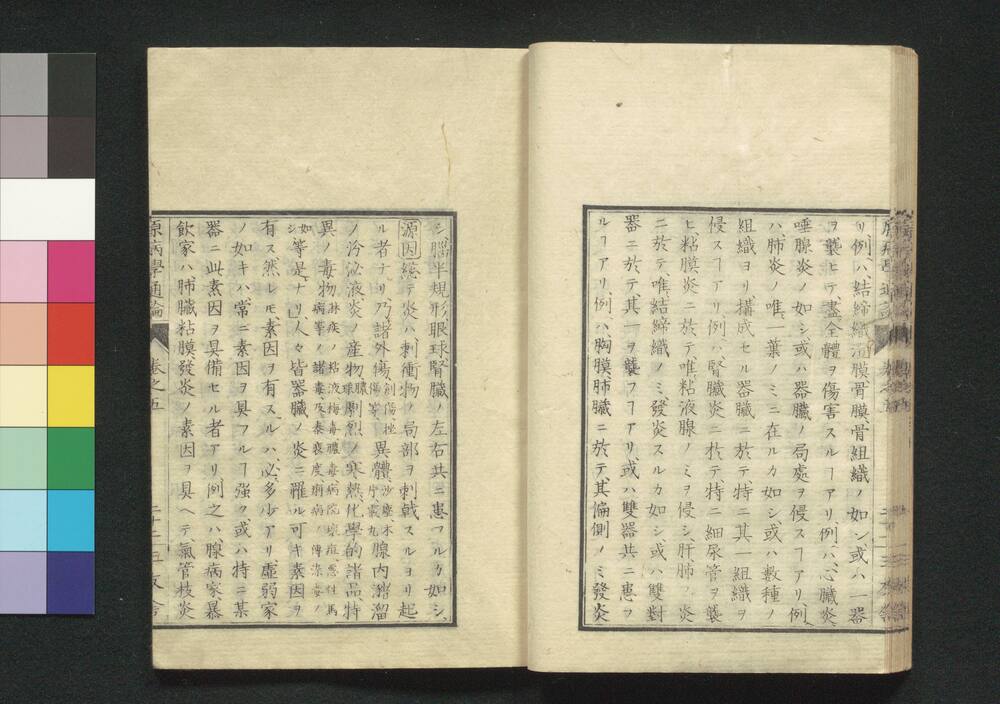 リ例ハ結締織漿膜骨膜骨組織ノ如シ或ハ一器
ヲ襲ヒテ盡全體ヲ傷害スルヿアリ例ハ心臓炎
唾腺炎ノ如シ或ハ器臓ノ局處ヲ侵スヿアリ例
ハ肺炎ノ唯一葉ノミニ在ルカ如シ或ハ數種ノ
組織ヨリ構成セル器臓ニ於テ特ニ其一組織ヲ
侵スヿアリ例ハ腎臓炎ニ於テ特ニ細尿管ヲ襲
ヒ粘膜炎ニ於テ唯粘液腺ノミヲ侵シ肝肺ノ炎
ニ於テ唯結締織ノミ發炎スルカ如シ或ハ雙對
器ニ於テ其一ヲ襲フヿアリ或ハ雙器共ニ患フ
ルヿアリ例ハ胸膜肺臓ニ於テ其偏側ノミ發炎
シ腦半規形眼球腎臓ノ左右共ニ患フルカ如シ
源因 總テ炎ハ刺衝物ノ局部ヲ刺戟スルヨリ起
ル者ナリ乃諸外傷創傷挫傷等異體沙塵木片震丸腺内瀦溜
ノ分泌液炎ノ産物膿球劇烈ノ寒熱化學的諸品特
異ノ毒物淋疾ノ粘液梅毒膿毒病院瘀症惡性馬病等ノ諸毒及衰褒度痢病ノ傳染毒ノ
如シ等是ナリ人々皆器臓ノ炎ニ罹ル可キ素因ヲ
有ス然レモ素因ヲ有スルハ必多少アリ虚弱家
ノ如キハ常ニ素因ヲ具フルヿ强ク或ハ特ニ某
器ニ此素因ヲ具備セル者アリ例之ハ腺病家暴
飲家ハ肺臓粘膜發炎ノ素因ヲ具ヘテ氣管枝炎
原病學通論 卷之五 二十三